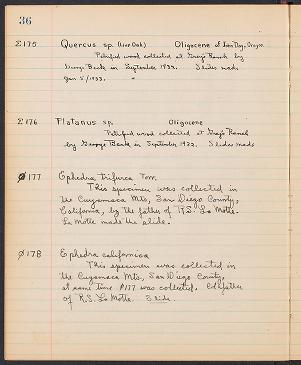 36
Σ175 Quercus sp. (Live Oak) Oligocene of John Day, Oregon
Petrified wood collected at Gray's Ranch by
George Beck in September 1932. Slides made
Jan 5/1933.
Σ176 Platanus sp. Oligocene
Petrified wood collected at Gray's Ranch
by George Beck in September 1932. Slides made
Ø177 Ephedra trifurca Torr.
This specimen was collected in
the Cuyamaca Mts, San Diego County,
California, by the father of R.S. La Motte.
La Motte made the slide.
Ø178 Ephedra californica
This specimen was collected in
the Cuyamaca Mts, San Diego County,
at same time #177 was collected. Col. father
of R.S. La Motte. Slide.